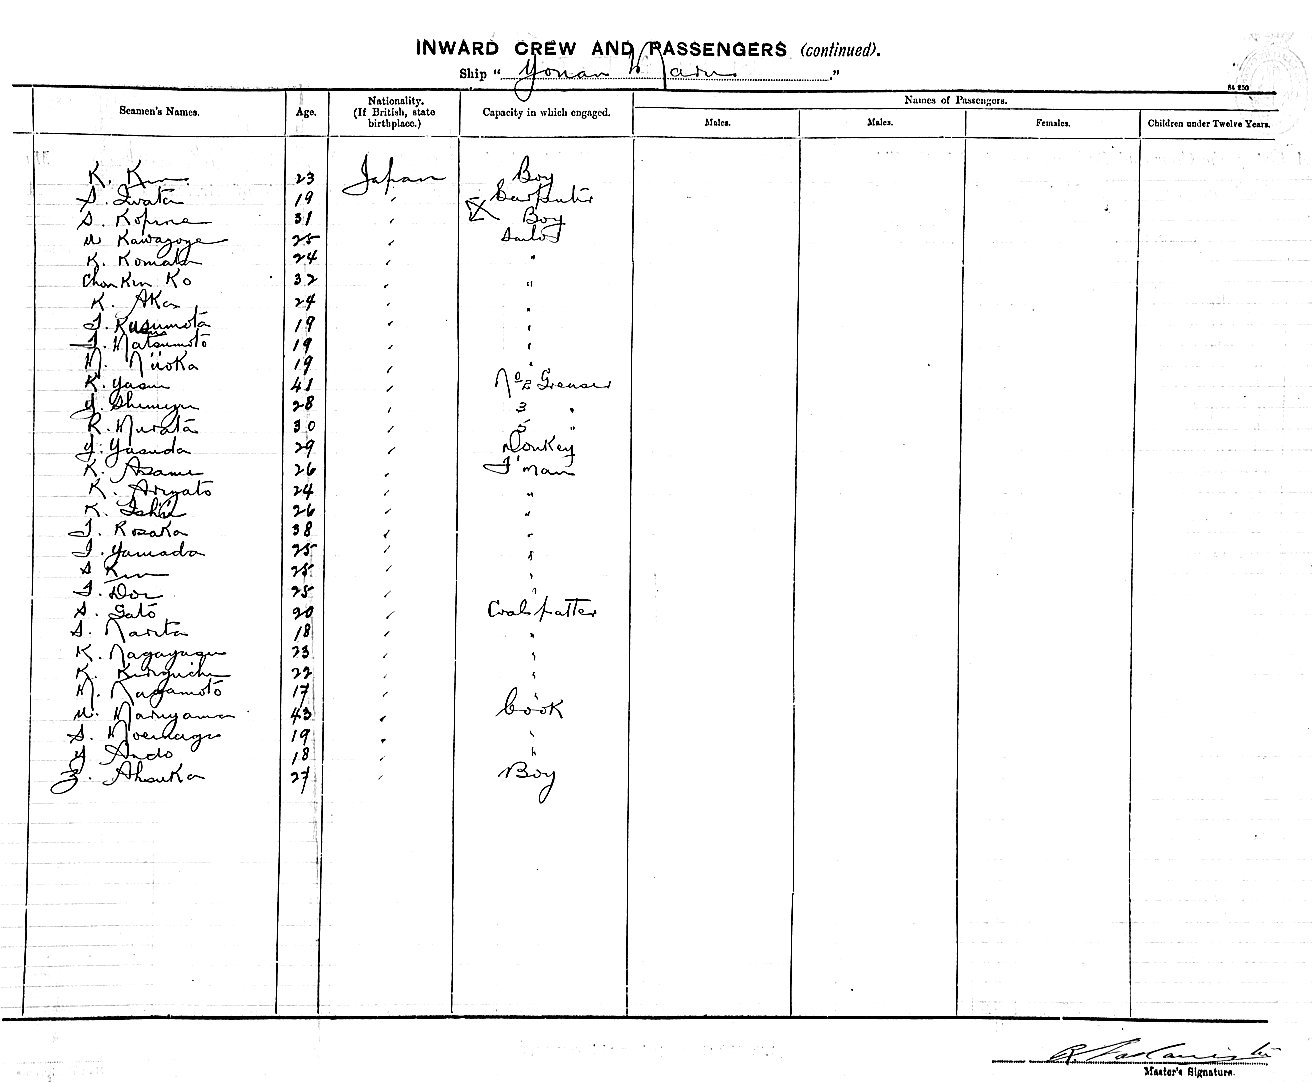 INWARD CREW AND PASSENGERS (continued).
Ship " Yonan Maru "
84 250
Seamen's Names. Age. Nationality. (If British, state birthplace.) Capacity in which engaged. Names of Passengers.
Males. Males. Females. Children under Twelve Years.
K. Kim 23 Japan Boy
S. Iwata 19 " Carpenter
S. 31 " Boy
M Kawazoye 25 " Sailor
K. 24 " "
Chon Kun Ko 32 " "
K. Aka 24 " "
T. Kusumoto 19 " "
T. Matsumoto 19 " "
M. Niioka 19 " "
K. Yasui 41 " No 2 Greaser
Y. 28 " 3 "
R. Murata 30 " 5 "
Y. Yasuda 29 " Donkey
K. Asami 26 " F'man
K. Ariyato 24 " "
K. Ishii 26 " "
T. Kosaka 38 " "
T. Yamada 25 " "
S Kim 25 " "
T. Doi 25 " "
S. Sato 20 " Coalspatter
S. Narita 18 " "
K. 23 " "
K. Kiriguchi 22 " "
M. Nagamoto 17 " "
M. Maruyama 43 " Cook
S. 19 " "
Y Ando 18 " "
Z. 27 " Boy
Master's Signature.